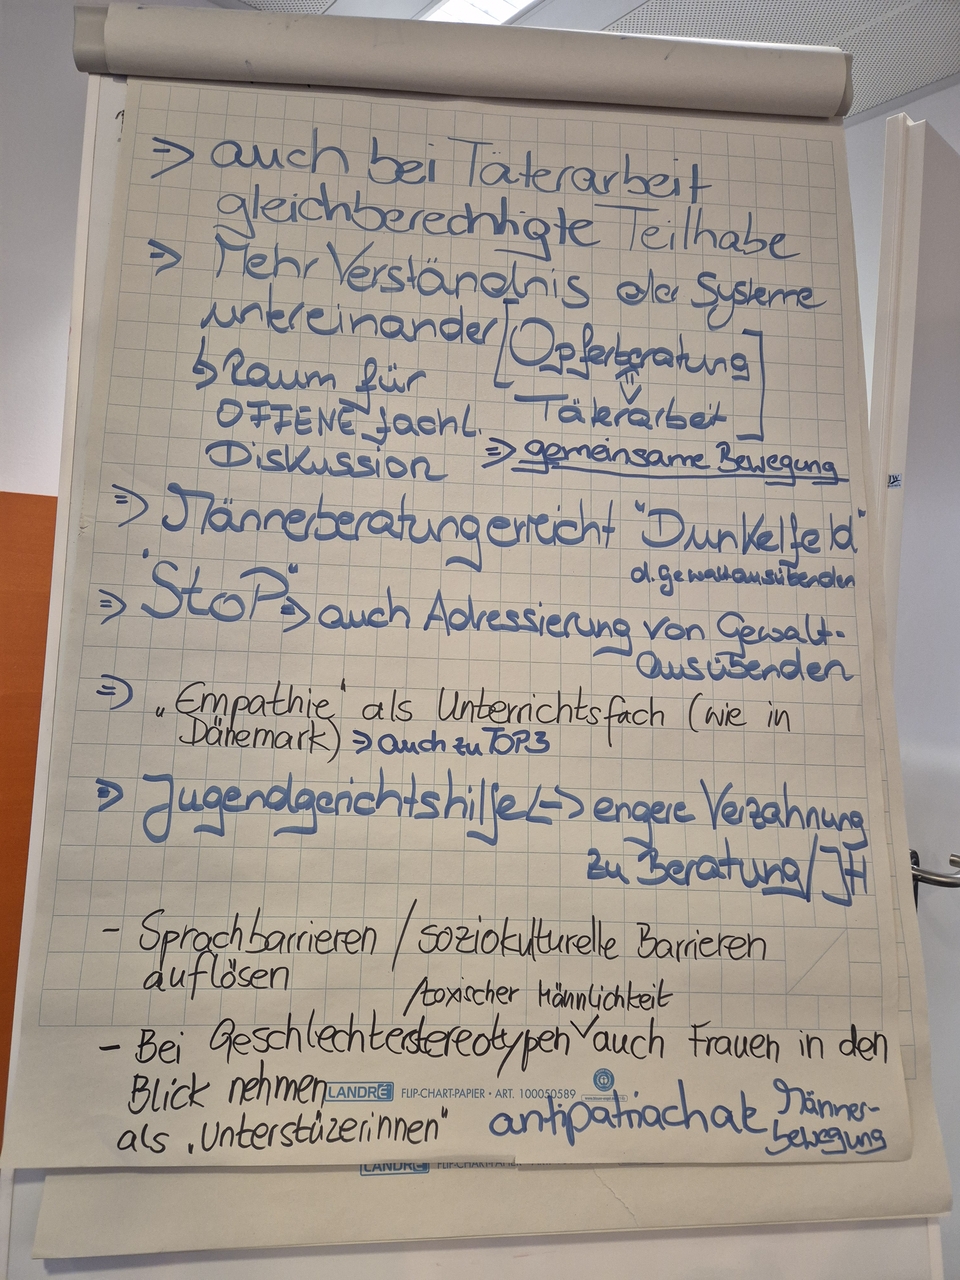 => auch bei Täterarbeit
gleichberechtigte Teilhabe
=> Mehr Verständnis der Systeme
untereinander [Opferberatung
<=>
Täterarbeit]
↳ Raum für
OFFENE fachl.
Diskussion
=> gemeinsame Bewegung
=> Männerberatung erreicht "Dunkelfeld"
d. gewaltausübenden
=> "StoP" => auch Adressierung von Gewalt-
ausübenden
=> „Empathie" als Unterrichtsfach (wie in
Dänemark) => auch zu TOP3
=> Jugendgerichtshilfe <-> engere Verzahnung
zu Beratung/JH
- Sprachbarrieren / soziokulturelle Barrieren
auflösen
/toxischer Männlichkeit
- Bei Geschlechterstereotypen ˅ auch Frauen in den
Blick nehmen
LANDRÉ FLIP-CHART-PAPIER • ART. 100050589
als „Unterstüzerinnen"
antipatriachale Männer-
bewegung
LANDRÉ FLIP-CHART-PAPIER